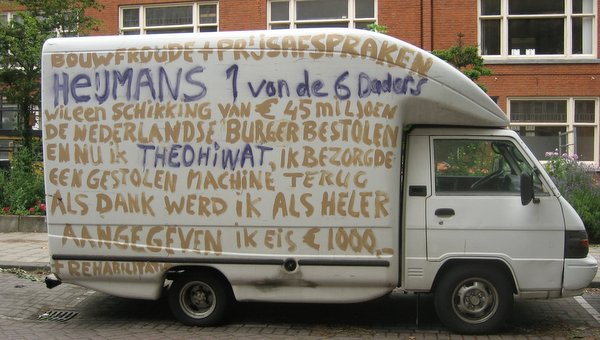 BOUWFROUDE + PRIJSAFSPRAKEN
HEIJMANS 1 van de 6 Daders
WIL EEN SCHIKKING VAN € 45 MILJOEN
DE NEDERLANDSE BURGER BESTOLEN
EN NU IK THEO HIWAT, IK BEZORGDE
EEN GESTOLEN MACHINE TERUG
ALS DANK WERD IK ALS HELER
AANGEGEVEN IK EIS € 1000,-
+ REHABILITATIE